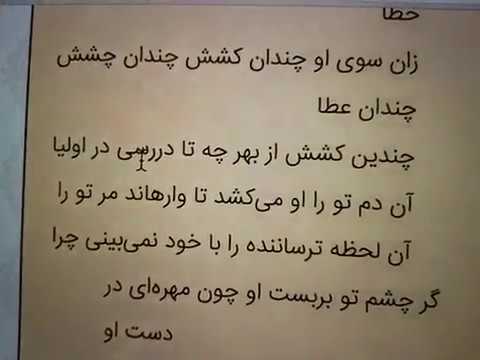 خطا
زان سوی او چندان کشش چندان چشش
چندان عطا
چندین کشش از بهر چه تا دررسی در اولیا
آن دم تو را او می‌کشد تا وارهاند مر تو را
آن لحظه ترساننده را با خود نمی‌بینی چرا
گر چشم تو بربست او چون مهره‌ای در
دست او